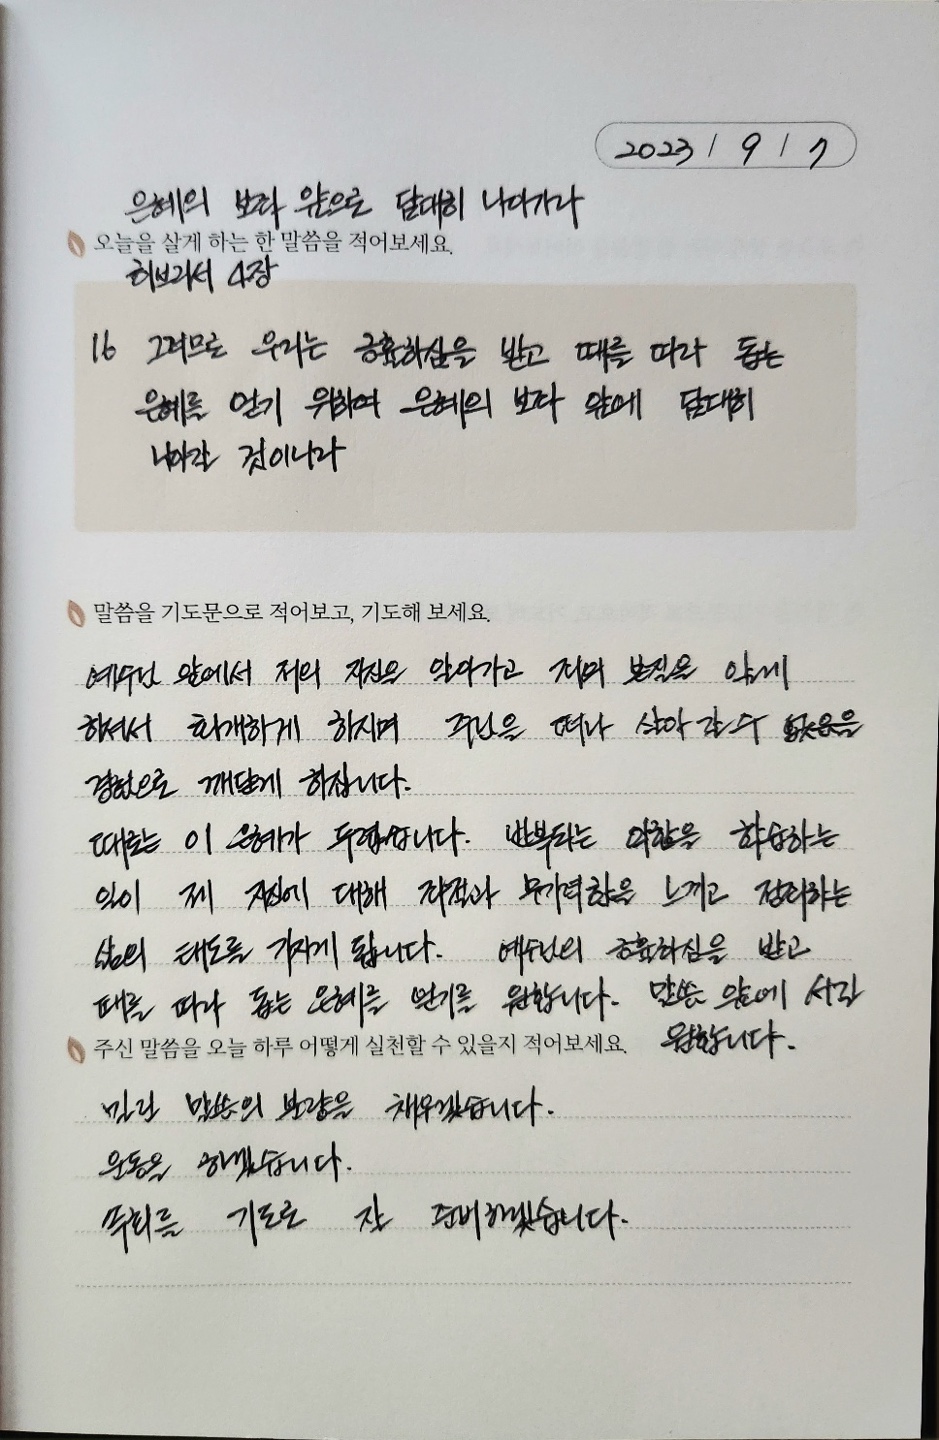 2023 / 9 / 7
은혜의 보좌 앞으로 담대히 나아가라
오늘을 살게 하는 한 말씀을 적어보세요.
히브리서 4장
16 그러므로 우리는 긍휼하심을 받고 때를 따라 돕는
은혜를 얻기 위하여 은혜의 보좌 앞에 담대히
나아갈 것이니라
말씀을 기도문으로 적어보고, 기도해 보세요.
예수님 앞에서 저의 자신을 알아가고 저의 본질을 알게
하셔서 회개하게 하시며 주님을 떠나 살아갈 수 없음을
경험으로 깨닫게 하십니다.
때로는 이 은혜가 두렵습니다. 반복되는 악함을 학습하는
일이 제 자신에 대해 좌절과 무기력함을 느끼고 정죄하는
삶의 태도를 가지게 됩니다. 예수님의 긍휼하심을 받고
때를 따라 돕는 은혜를 얻기를 원합니다. 말씀 앞에 서길
원합니다.
주신 말씀을 오늘 하루 어떻게 실천할 수 있을지 적어보세요.
밀린 말씀의 분량을 채우겠습니다.
운동을 하겠습니다.
주회를 기도로 잘 준비하겠습니다.